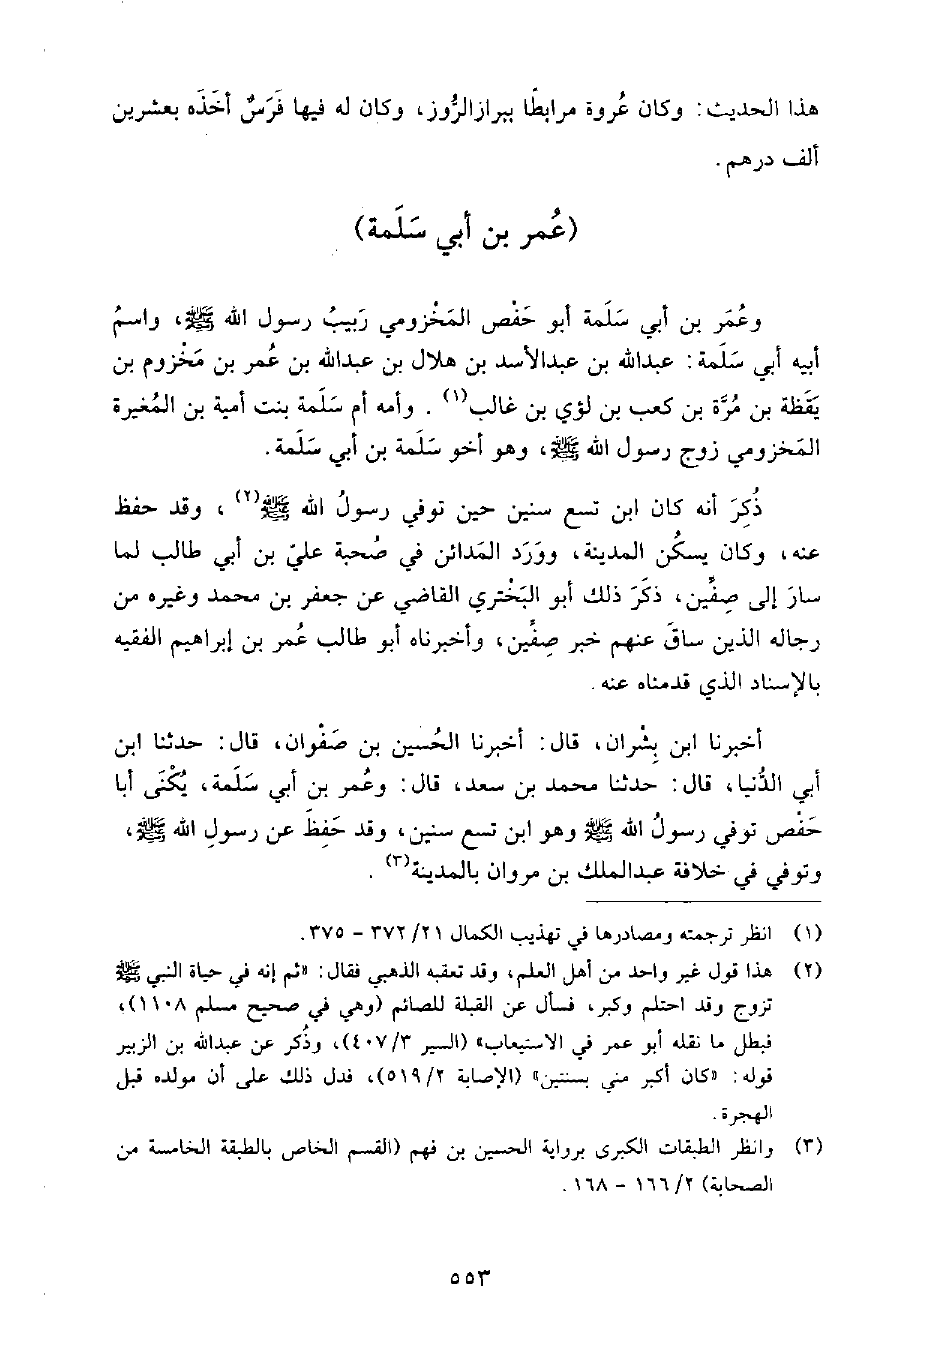 هذا الحديث: وكان عُروة مرابطًا ببرازالرُّوز، وكان له فيها فَرَسٌ أخَذَه بعشرين
ألف درهم.
(عُمر بن أبي سَلَمة)
وعُمَر بن أبي سَلَمة أبو حَفْص المَخْزومي رَبيبُ رسول الله ﷺ، واسمُ
أبيه أبي سَلَمة: عبدالله بن عبدالأسد بن هلال بن عبدالله بن عُمر بن مَخْزوم بن
يَقَظة بن مُرَّة بن كعب بن لؤي بن غالب(١) . وأمه أم سَلَمة بنت أمية بن المُغيرة
المَخزومي زوج رسول الله ﷺ، وهو أخو سَلَمة بن أبي سَلَمة.
ذُكِرَ أنه كان ابن تسع سنين حين توفي رسولُ الله ﷺ(٢) ، وقد حفظ
عنه، وكان يسكُن المدينة، ووَرَد المَدائن في صُحبة عليّ بن أبي طالب لما
سارَ إلى صِفِّين، ذكَرَ ذلك أبو البَخْتري القاضي عن جعفر بن محمد وغيره من
رجاله الذين ساقَ عنهم خبر صِفِّين، وأخبرناه أبو طالب عُمر بن إبراهيم الفقيه
بالإسناد الذي قدمناه عنه.
أخبرنا ابن بِشْران، قال: أخبرنا الحُسين بن صَفْوان، قال: حدثنا ابن
أبي الدُّنيا، قال: حدثنا محمد بن سعد، قال: وعُمر بن أبي سَلَمة، يُكْنَى أبا
حَفْص توفي رسولُ الله ﷺ وهو ابن تسع سنين، وقد حَفِظَ عن رسولِ الله ﷺ،
وتوفي في خلافة عبدالملك بن مروان بالمدينة(٣) .
(١) انظر ترجمته ومصادرها في تهذيب الكمال ٢١/ ٣٧٢ - ٣٧٥.
(٢) هذا قول غير واحد من أهل العلم، وقد تعقبه الذهبي فقال: «ثم إنه في حياة النبي ﷺ
تزوج وقد احتلم وكبر، فسأل عن القبلة للصائم (وهي في صحيح مسلم ١١٠٨)،
فبطل ما نقله أبو عمر في الاستيعاب» (السير ٣/ ٤٠٧)، وذُكر عن عبدالله بن الزبير
قوله: «كان أكبر مني بسنتين» (الإصابة ٢/ ٥١٩)، فدل ذلك على أن مولده قبل
الهجرة.
(٣) وانظر الطبقات الكبرى برواية الحسين بن فهم (القسم الخاص بالطبقة الخامسة من
الصحابة) ٢/ ١٦٦ - ١٦٨.
٥٥٣